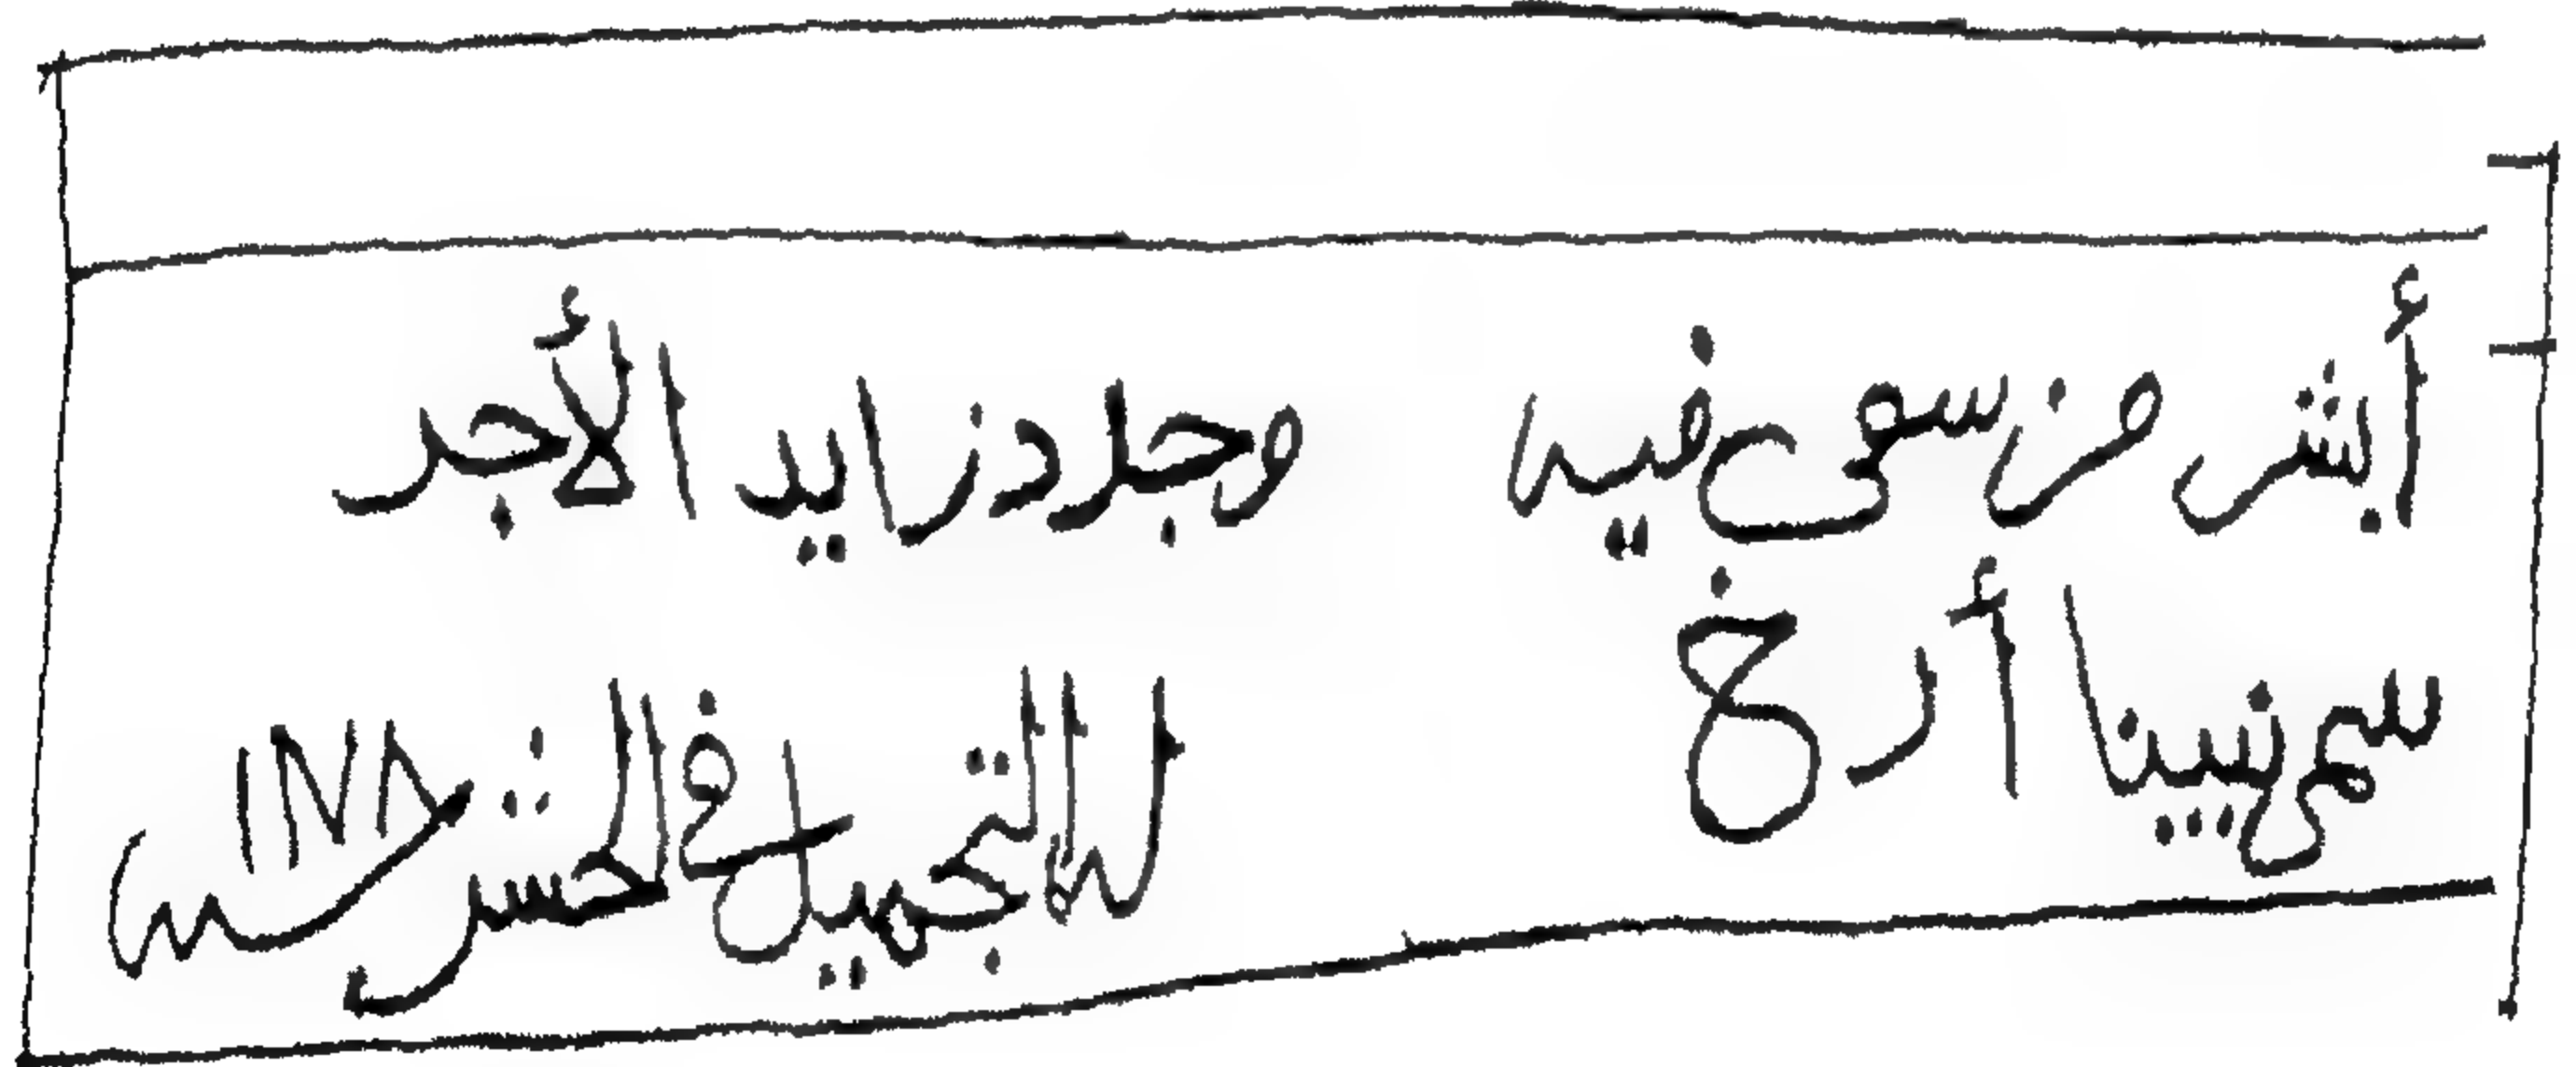 أبشر من سعى فيه وجدد زايد الأجر
سمي نبينا أرخ له التجميل في الحشر سنة ١٢٧٨